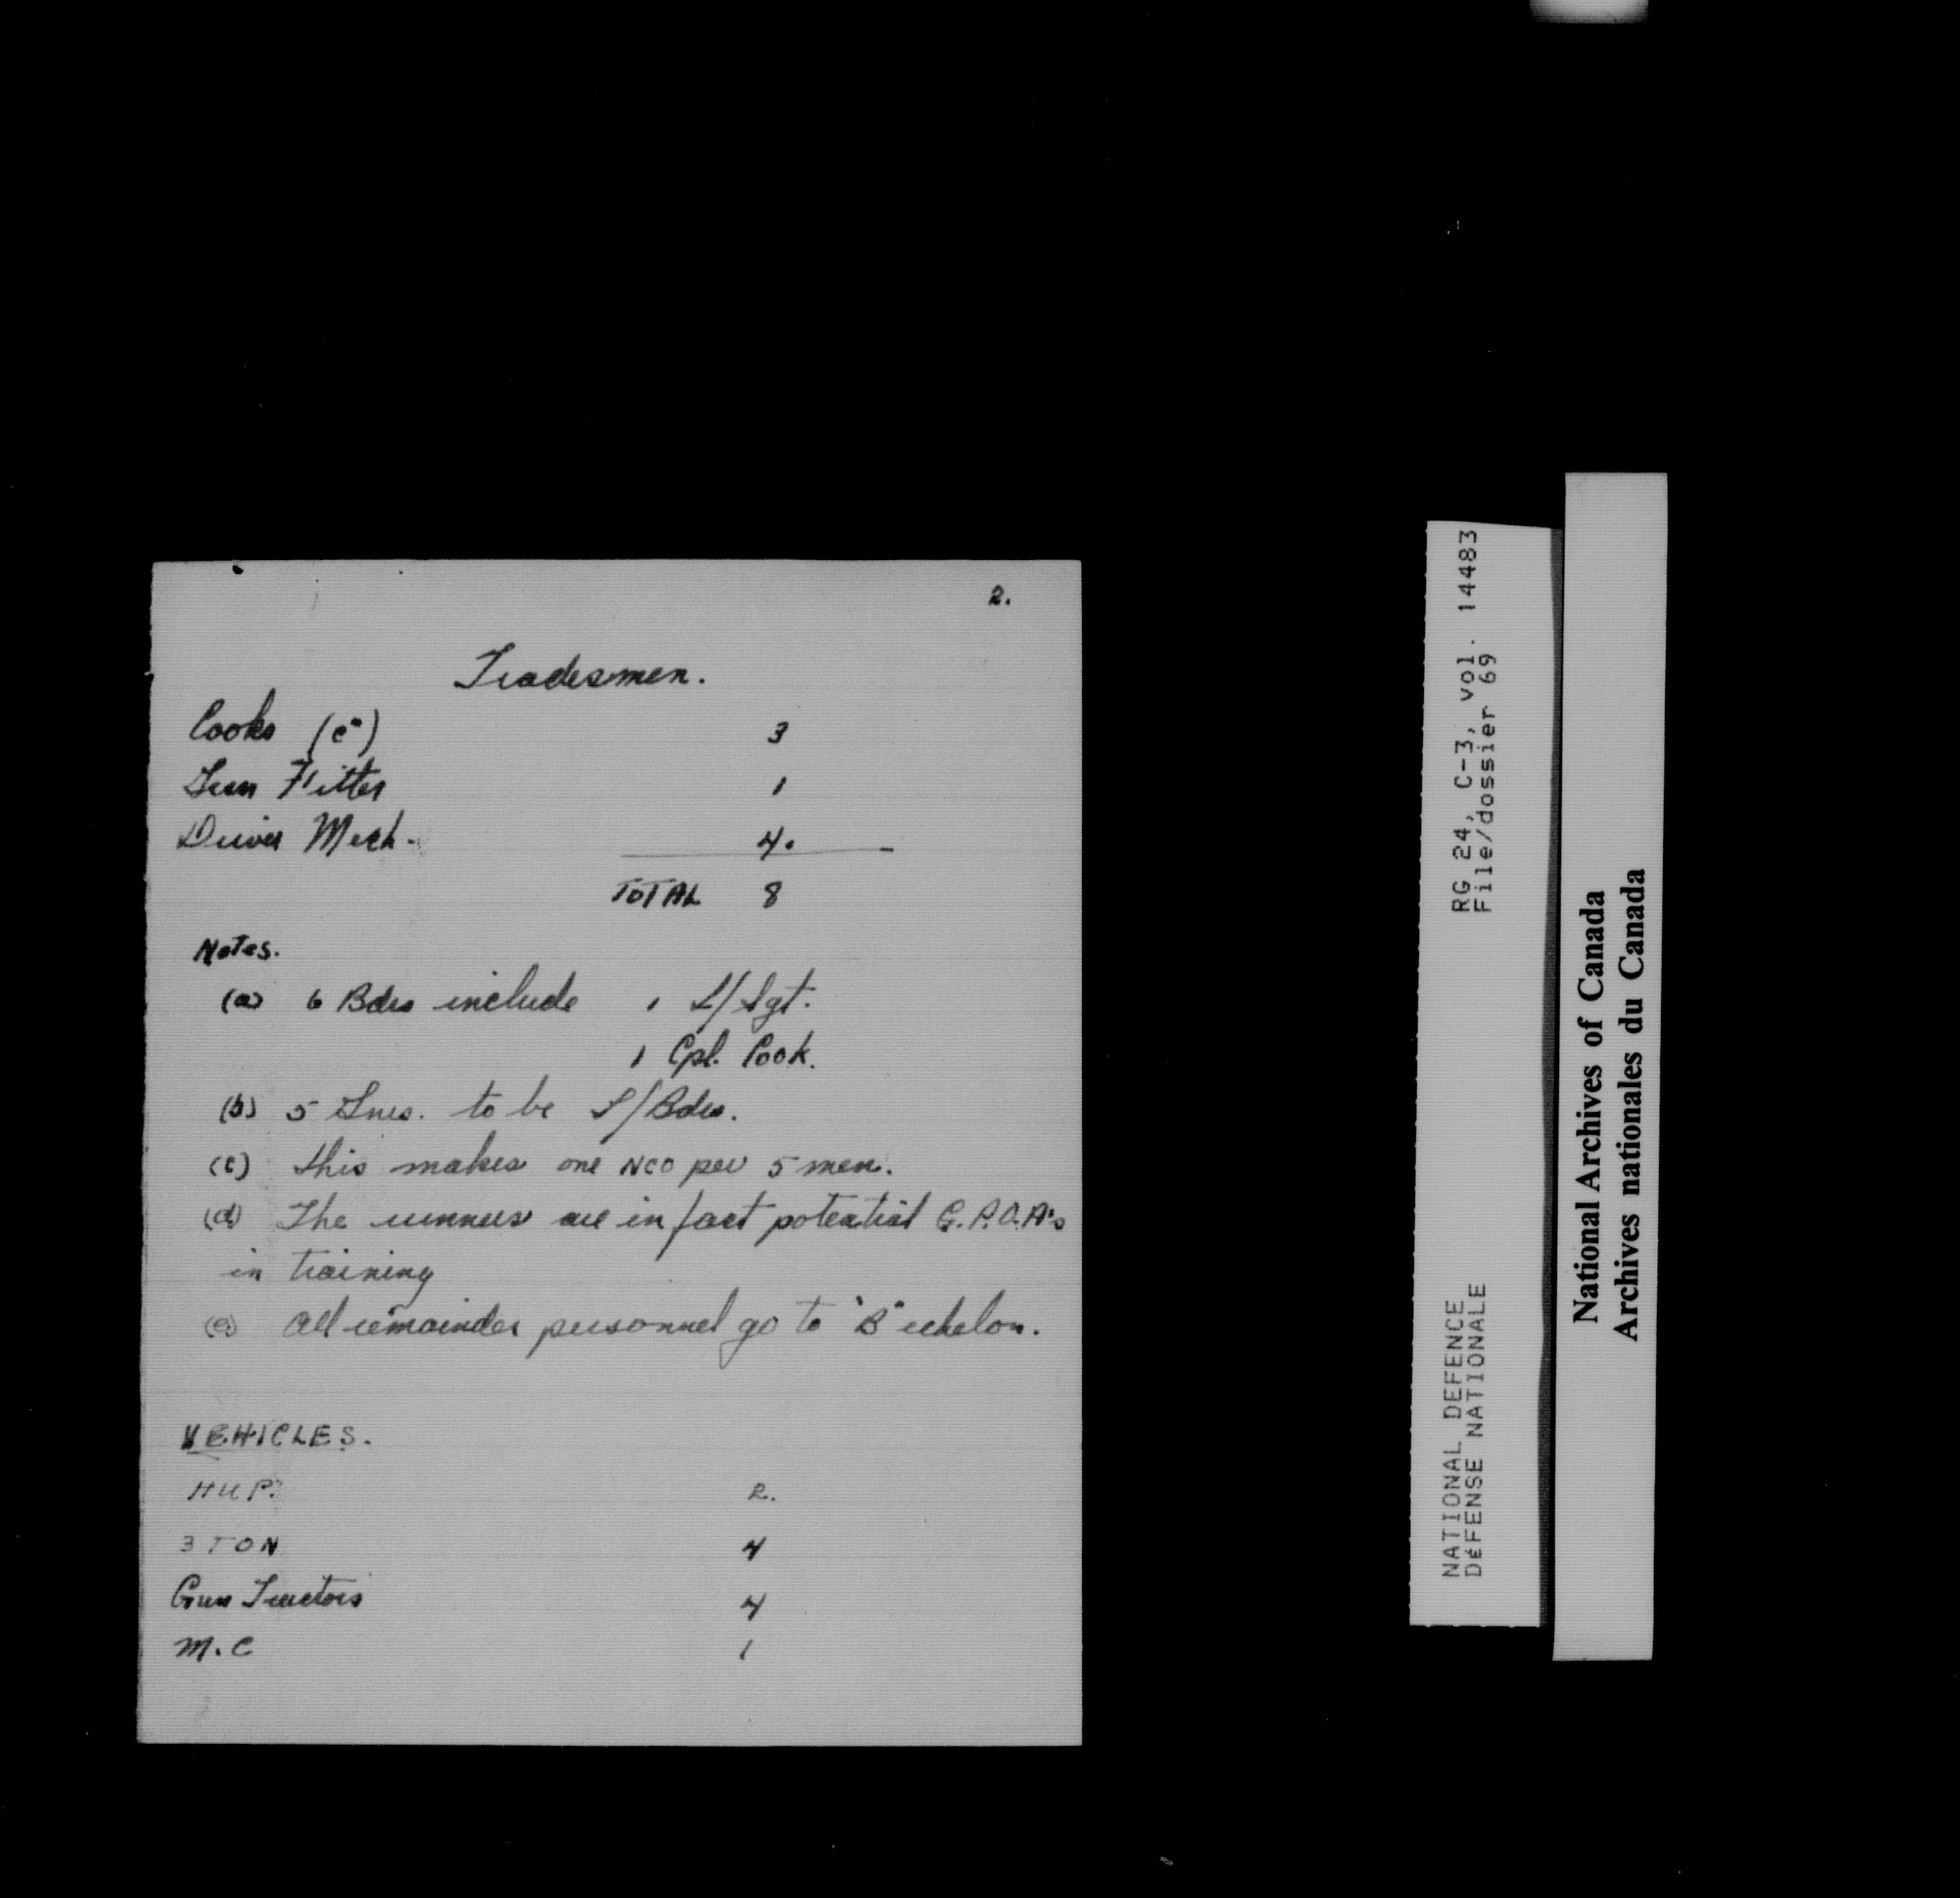 2.
Tradesmen.
Cooks (c) 3
Gun Fitter 1
Driver Mech. 4.
TOTAL 8
Notes.
(a) 6 Bdrs include 1 L/Sgt.
1 Cpl. Cook.
(b) 5 Gnrs. to be L/Bdrs.
(c) this makes one NCO per 5 men.
(d) The runners are in fact potential G.P.O.A's
in training
(e) All remainder personnel go to "B" echelon.
VEHICLES.
HUP. 2.
3 TON 4
Gun Tractors 4
M.C 1
RG 24, C-3, vol. 14483
File/dossier 69
NATIONAL DEFENCE
DÉFENSE NATIONALE
National Archives of Canada
Archives nationales du Canada